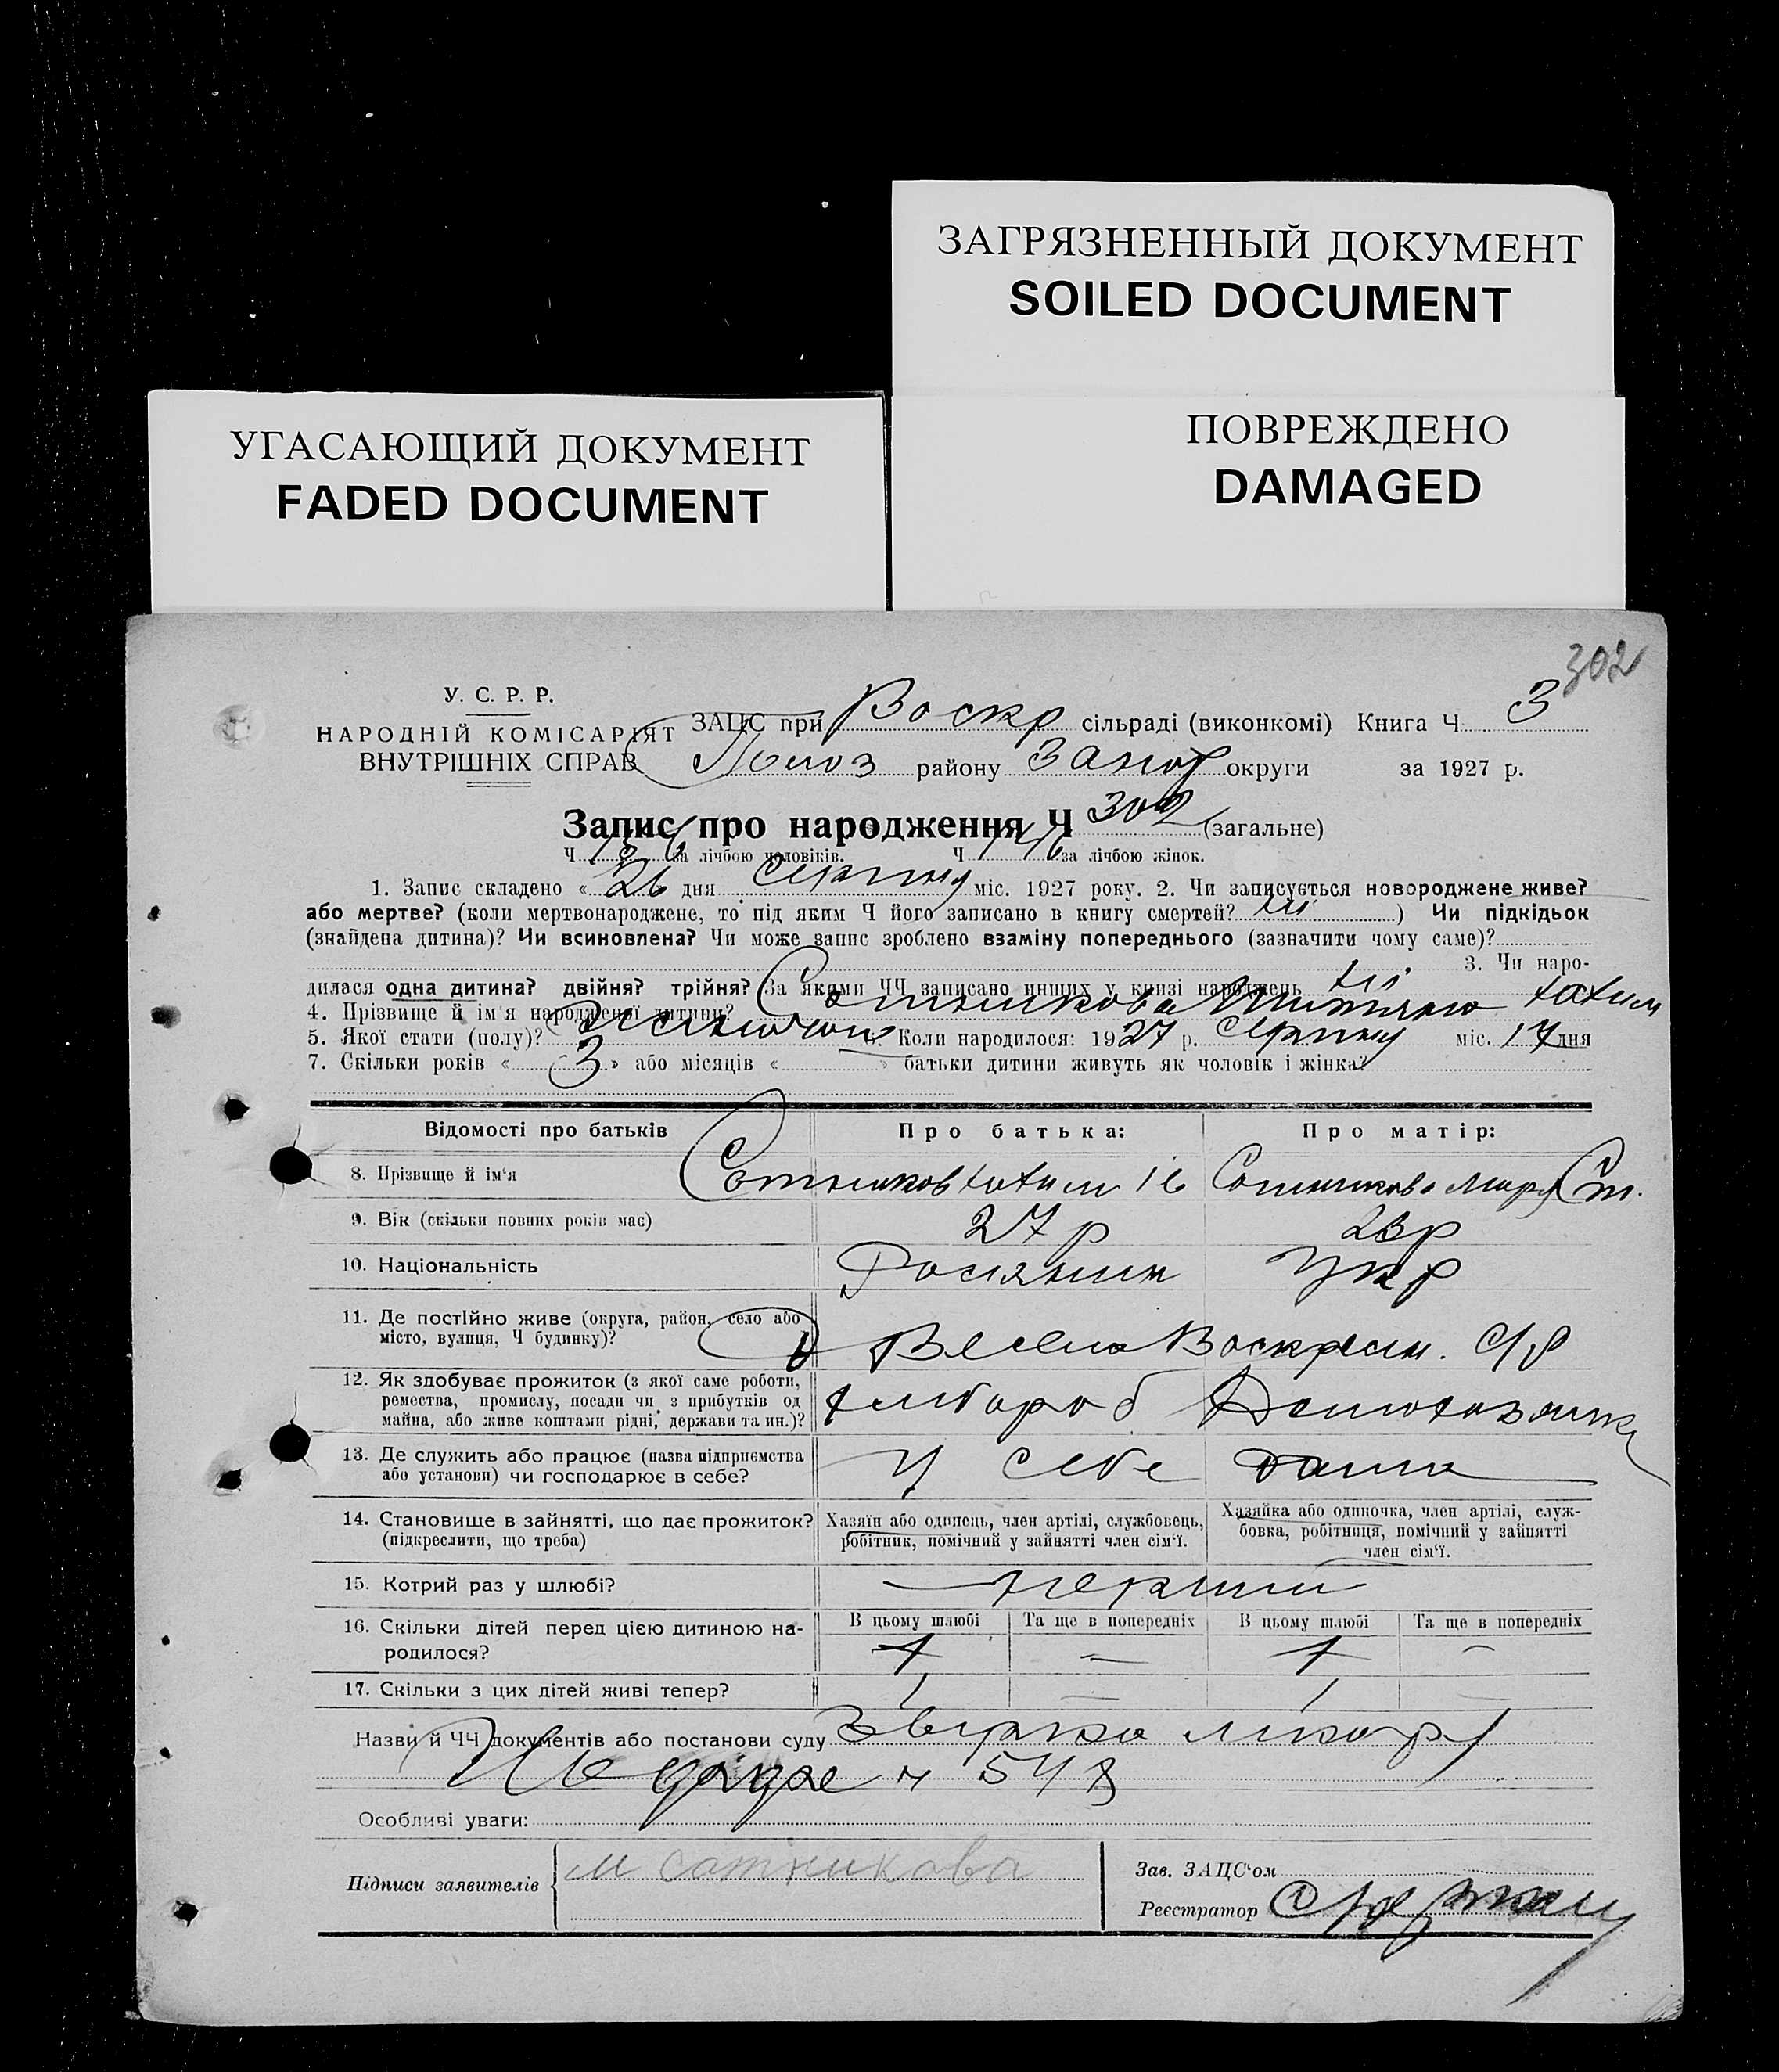 ЗАГРЯЗНЕННЫЙ ДОКУМЕНТ
SOILED DOCUMENT
УГАСАЮЩИЙ ДОКУМЕНТ
FADED DOCUMENT
ПОВРЕЖДЕНО
DAMAGED
302
У. С. Р. Р.
НАРОДНІЙ КОМІСАРІЯТ
ВНУТРІШНІХ СПРАВ
ЗАЦС при Воскр сільраді (виконкомі) Книга Ч 3
району Запор округи за 1927 р.
Запис про народження Ч 302 (загальне)
Ч за лічбою чоловіків. Ч 146 за лічбою жінок.
1. Запис складено « 26 дня Серпня міс. 1927 року. 2. Чи записується новороджене живе?
або мертве? (коли мертвонароджене, то під яким Ч його записано в книгу смертей? ні ) Чи підкідьок
(знайдена дитина)? Чи всиновлена? Чи може запис зроблено взаміну попереднього (зазначити чому саме)?
3. Чи наро-
дилася одна дитина? двійня? трійня? За якими ЧЧ записано инших у книзі народжень ні
4. Прізвище й ім'я народженої дитини? Сотникова
5. Якої стати (полу)? Жіночої Коли народилося: 1927 р. Серпня міс. 17 дня
7. Скільки років « 3 » або місяців « » батьки дитини живуть як чоловік і жінка?
Відомості про батьків Про батька: Про матір:
8. Прізвище й ім'я Сотников Сотникова Мария
9. Вік (скільки повних років має) 27 р 23р
10. Національність Росіянин Укр
11. Де постійно живе (округа, район, село або
місто, вулиця, Ч будинку)? Весела Воскресен. С/р
12. Як здобуває прожиток (з якої саме роботи,
ремества, промислу, посади чи з прибутків од
майна, або живе коштами рідні, держави та ин.)? хлібороб Домохазяйка
13. Де служить або працює (назва підприємства
або установи) чи господарює в себе? У себе дома
14. Становище в зайнятті, що дає прожиток?
(підкреслити, що треба)
Хазяїн або одинець, член артілі, службовець,
робітник, помічний у зайнятті член сім'ї.
Хазяйка або одиночка, член артілі, служ-
бовка, робітниця, помічний у зайнятті
член сім'ї.
15. Котрий раз у шлюбі? первий
16. Скільки дітей перед цією дитиною на-
родилося?
В цьому шлюбі Та ще в попередніх В цьому шлюбі Та ще в попередніх
1 — 1 —
17. Скільки з цих дітей живі тепер? 1 — 1 —
Назви й ЧЧ документів або постанови суду
Особливі уваги:
Підписи заявителів М Сотникова
Зав. ЗАЦС'ом
Реєстратор